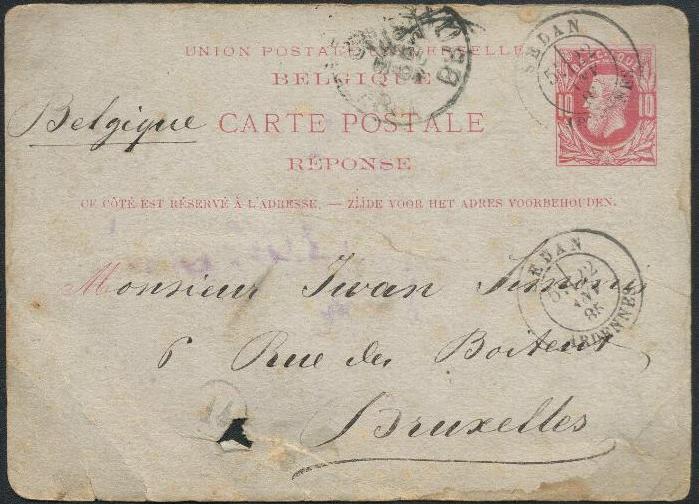 UNION POSTALE UNIVERSELLE
BELGIQUE
Belgique
CARTE POSTALE
RÉPONSE
CE CÔTÉ EST RÉSERVÉ À L'ADRESSE. — ZIJDE VOOR HET ADRES VOORBEHOUDEN.
SEDAN
10 10
SEDAN
22
85
ARDENNES
Monsieur Iwan Simonis
6 Rue des
14
Bruxelles